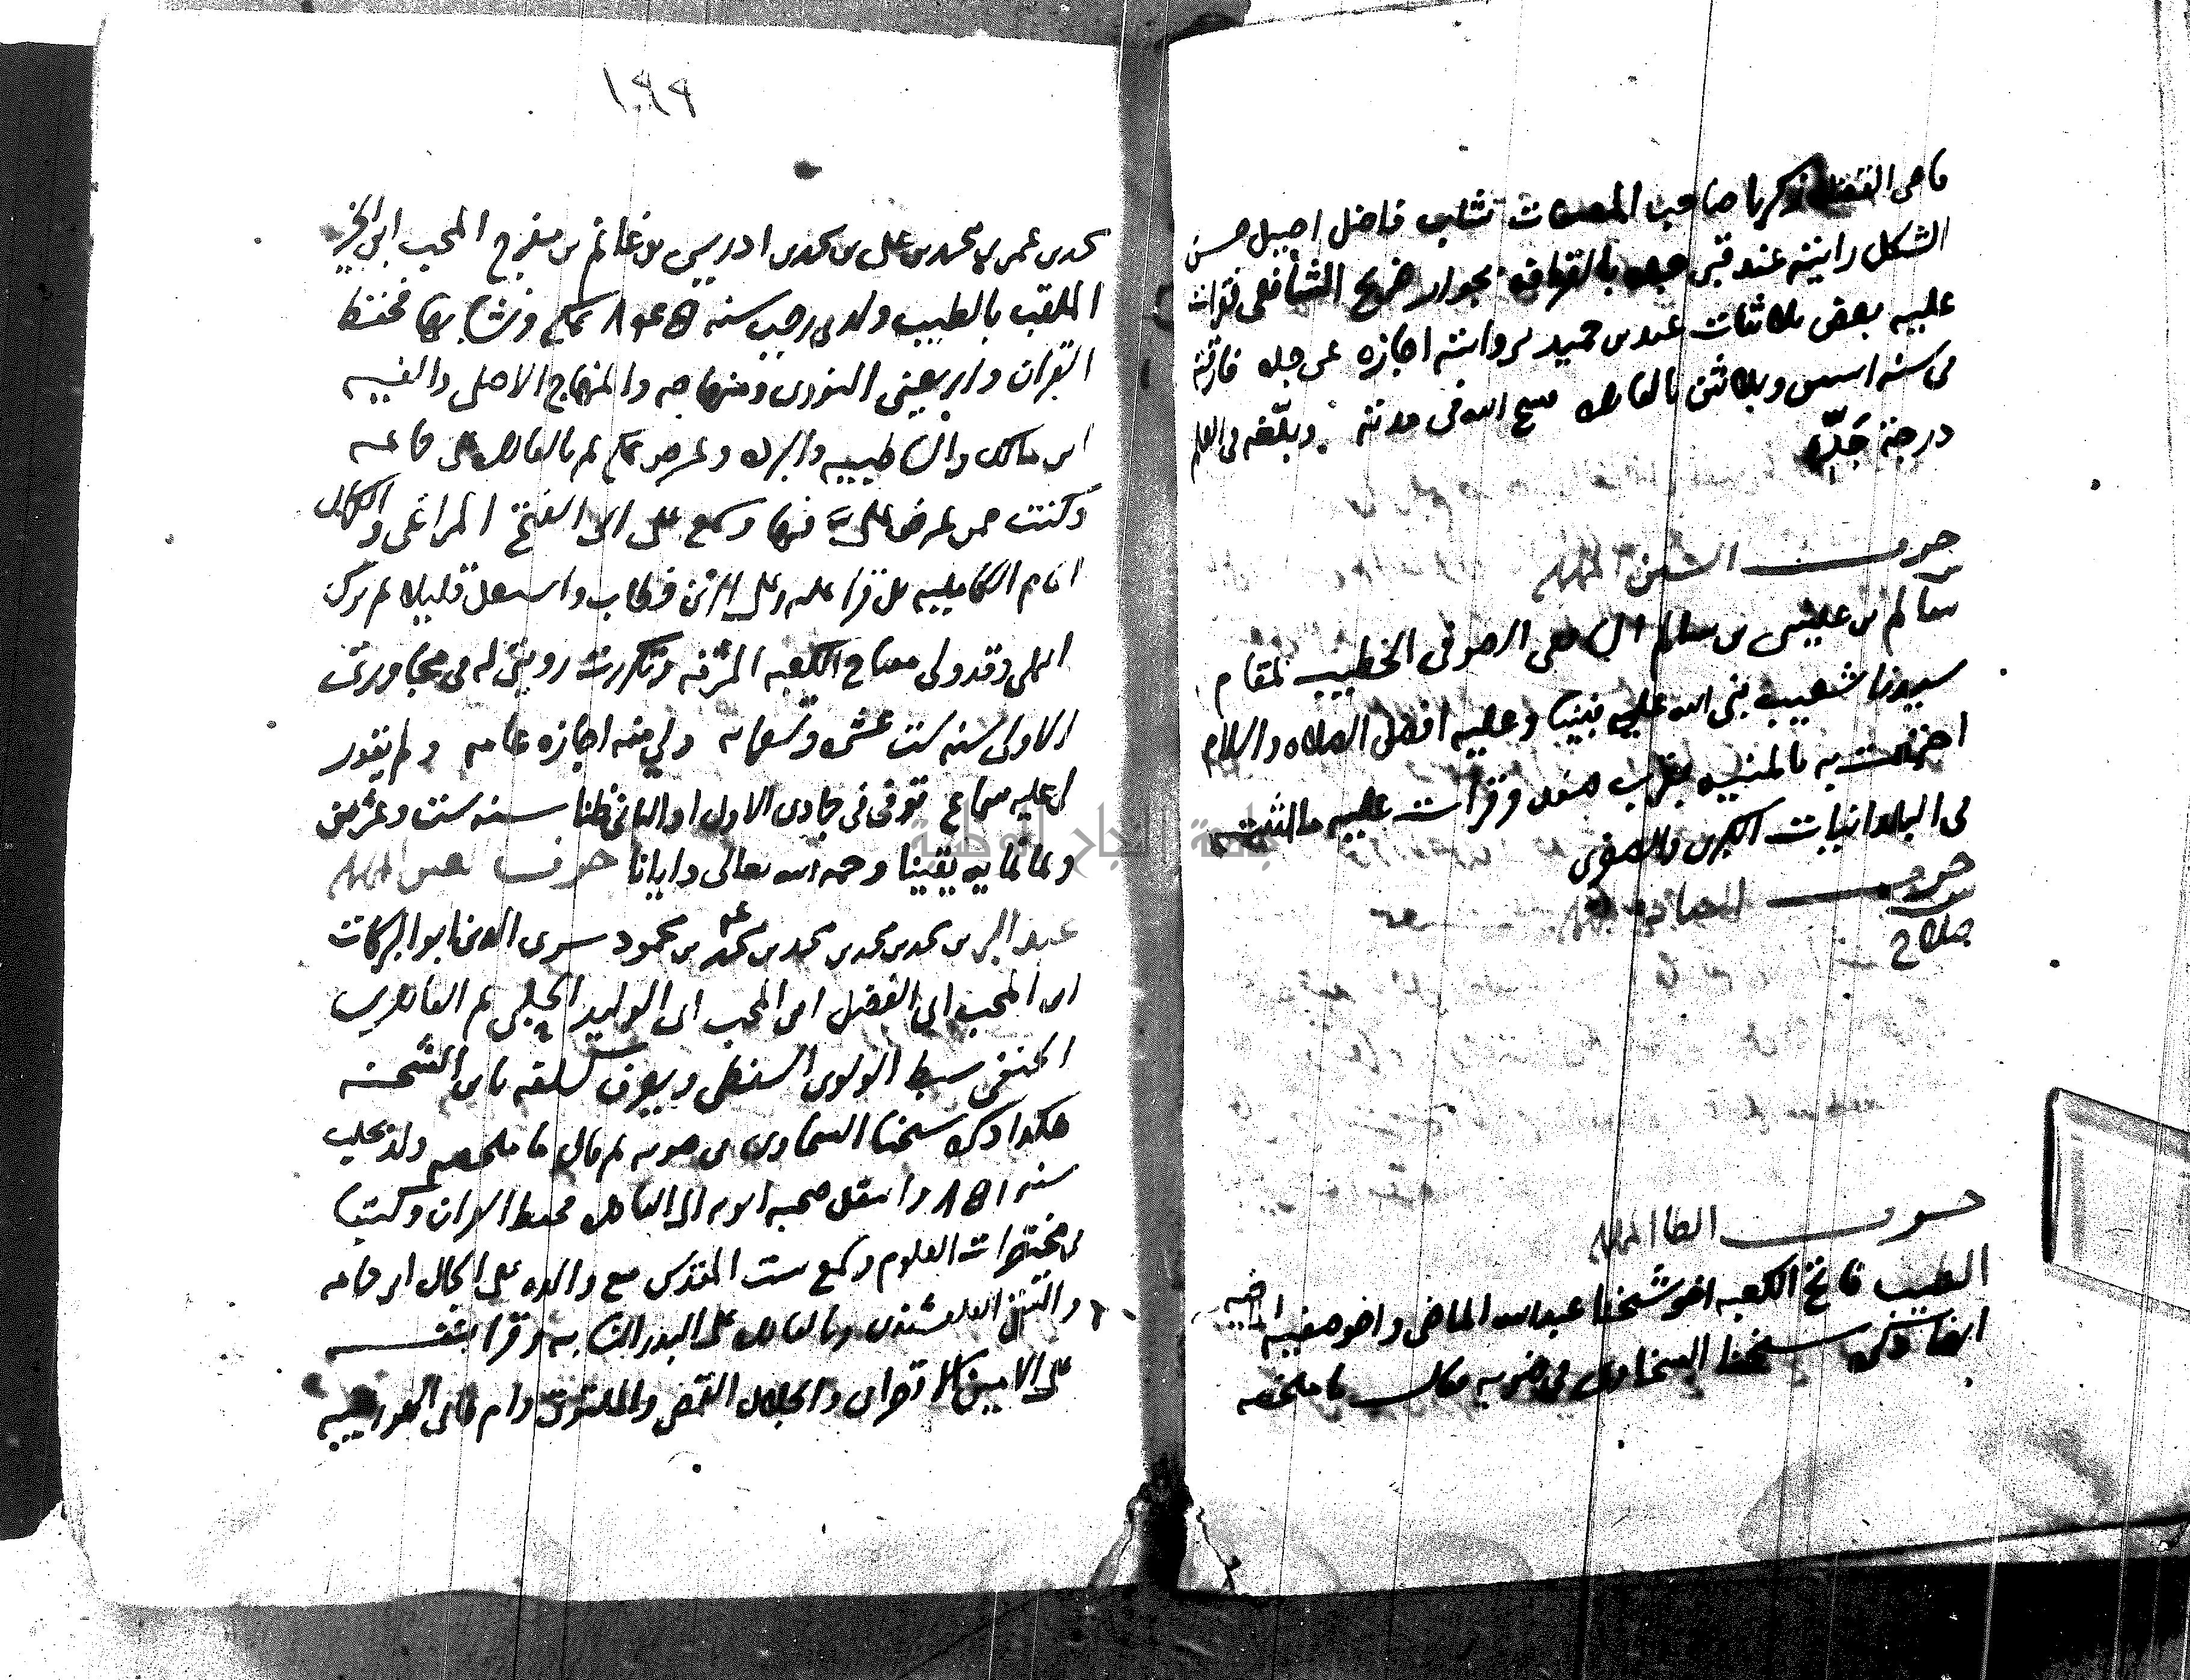 قاضي القضاة زكريا صاحب المصنفات شاب فاضل اصيل حسن
الشكل رايته عند قبر جده بالقرافة بجوار ضريح الشافعي فقرات
عليه بعض ثلاثيات عبد بن حميد بروايته اجازة عن جده فارقته
في سنة وثلاثين بالقاهرة فسح الله في مدته وبلغه في العلم
درجة جده
حرف السين المهملة
سالم بن عيسى بن سالم الشافعي الصوفي الخطيب بمقام
سيدنا شعيب نبي الله عليه نبينا وعليه افضل الصلاة والسلام
اجتمعت به بالمنية بقرب صفد وقرات عليه
في البلدانيات الكبرى والصغرى
حرف الصاد المهملة
صلاح
حرف الطا المهملة
الطيب فاتح الكعبة اخو شيخنا عبد الله الماضي واخو صفية الماضية
ايضا ذكره شيخنا السخاوي في ضوءه فقال ما ملخصه
١٩٩
محمد بن عمر بن محمد بن علي بن محمد بن ادريس بن غانم بن مفرج المحب ابو الخير
الملقب بالطيب ولد في رجب سنة بمكة ونشا بها فحفظ
القران واربعيني النووي ومنهاجه والمنهاج الاصلي والفية
ابن مالك والشاطبية والبردة وعرض بمكة ثم بالقاهرة على جماعة
وكنت ممن عرض علي فيها وسمع على ابي الفتح المراغي والكمال
امام الكاملية بل قرا عليه وعلى وطاب واشتغل قليلا ثم ترك
انتهى وقد ولي مفتاح الكعبة المشرفة وتكررت رويتي له في مجاورتي
الاولى سنة ست عشرة وتسعمائة ولي منه اجازة عامة ولم يتفق
لي عليه سماع توفي في جمادى الاول او الثاني ظنا سنة ست وعشرين
وثمانمايه يقينا رحمه الله تعالى وايانا حرف العين المهملة
عبد البر بن محمد بن محمد بن محمد بن محمد بن محمود سري الدين ابو البركات
ابن المحب ابي الفضل ابن المحب ابي الوليد الحلبي ثم القاهري
الحنفي سبط الولوي السفطي ويعرف كسلفه بابن الشحنة
هكذا ذكره شيخنا السخاوي في ضوءه ثم قال ما ملخصه ولد بحلب
سنة ٨٥١ وانتقل صحبة ابويه الى القاهرة فحفظ القران وكتبا
في مختصرات العلوم وسمع ببيت المقدس مع والده على الجمال ابن جماعة
والتقي القلقشندي وبالقاهرة على البدر النسابة وقرا بنفسه
على الامين الاقصراي والجلال القمصي والملتوتي وام هاني الهورينية